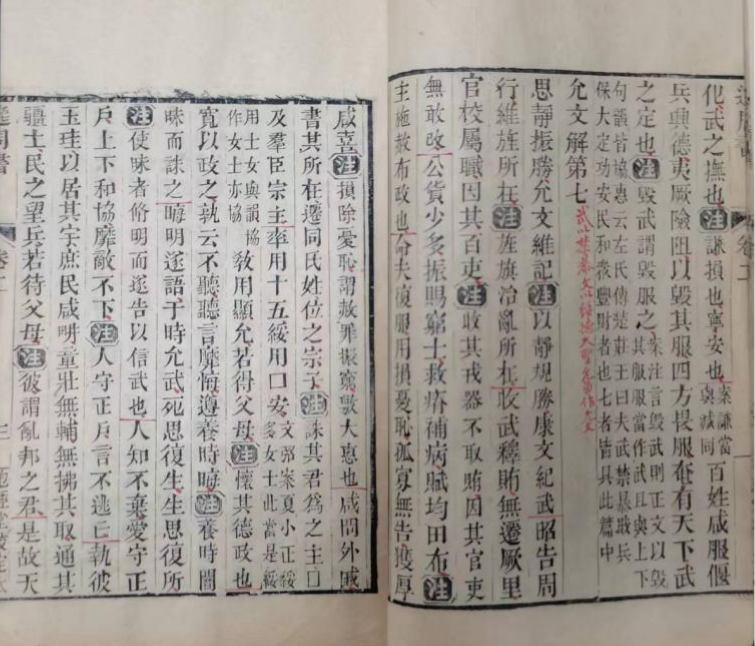 卷二
化武之撫也注謙損也寧安也案謙當與諴同百姓咸服偃
兵興德夷厥險阻以毀其服四方畏服奄有天下武
之定也注毀武謂毀服之案注言毀武則正文以毀其服服當作武且與上下
句韻皆協惠云左氏傳楚莊王曰夫武禁暴戢兵
保大定功安民和衆豐財者也七者皆具此篇中
允文解第七
思靜振勝允文維記注以靜規勝康文紀武昭告周
行維旌所在注旌旗治亂所在收武釋賄無遷厥里
官校屬職因其百吏注收其戎器不取賄因其官吏
無敢改公貨少多振賜窮士救瘠補病賦均田布注
主施赦布政也命夫復服用損憂恥孤寡無告獲厚
咸喜注損除憂恥謂赦罪振窮數大惠也咸問外戚
書其所在遷同氏姓位之宗子注誅其君為之主口
及羣臣宗主率用十五綏用口安文弨案夏小正綏多女士此當是綏
用士女與韻協作女士亦協教用顯允若得父母注懷其德政也
寬以政之孰云不聽聽言靡悔遵養時晦注養時闇
昧而誅之晦明遂語于時允武死思復生生思復所
注使昧者脩明而遂告以信武也人知不棄愛守正
戶上下和協靡敵不下注人守正戶言不逃亡執彼
玉珪以居其宇庶民咸畊童壯無輔無拂其取通其
疆土民之望兵若待父母注彼謂亂邦之君是故天
逸周書 卷二 三